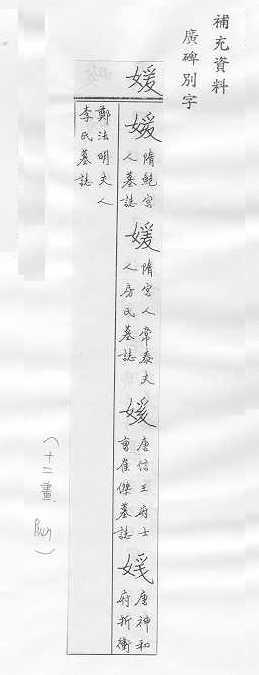 補充資料
廣碑別字
媛
媛 隋鮑宮人墓誌
媛 隋宮人常泰夫人房氏墓誌
媛 唐信王府士曹崔傑墓誌
媛 唐神和府折衝
鄭法明夫人李氏墓誌
（十二畫